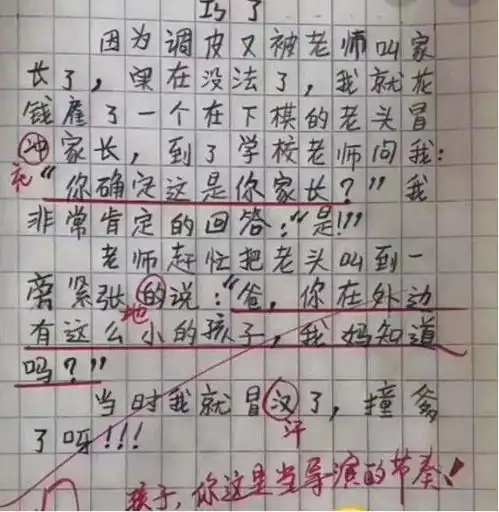 巧了
因为调皮又被老师叫家
长了，实在没法了，我就花
钱雇了一个在下棋的老头冒
冲家长，到了学校老师问我：
充
“你确定这是你家长？”我
非常肯定的回答：“是！！！”
老师赶忙把老头叫到一
旁紧张的说：“爸，你在外边
地
有这么小的孩子，我妈知道
吗？”
当时我就冒汉了，撞爹
汗
了呀！！！
孩子，你这是当导演的节奏！